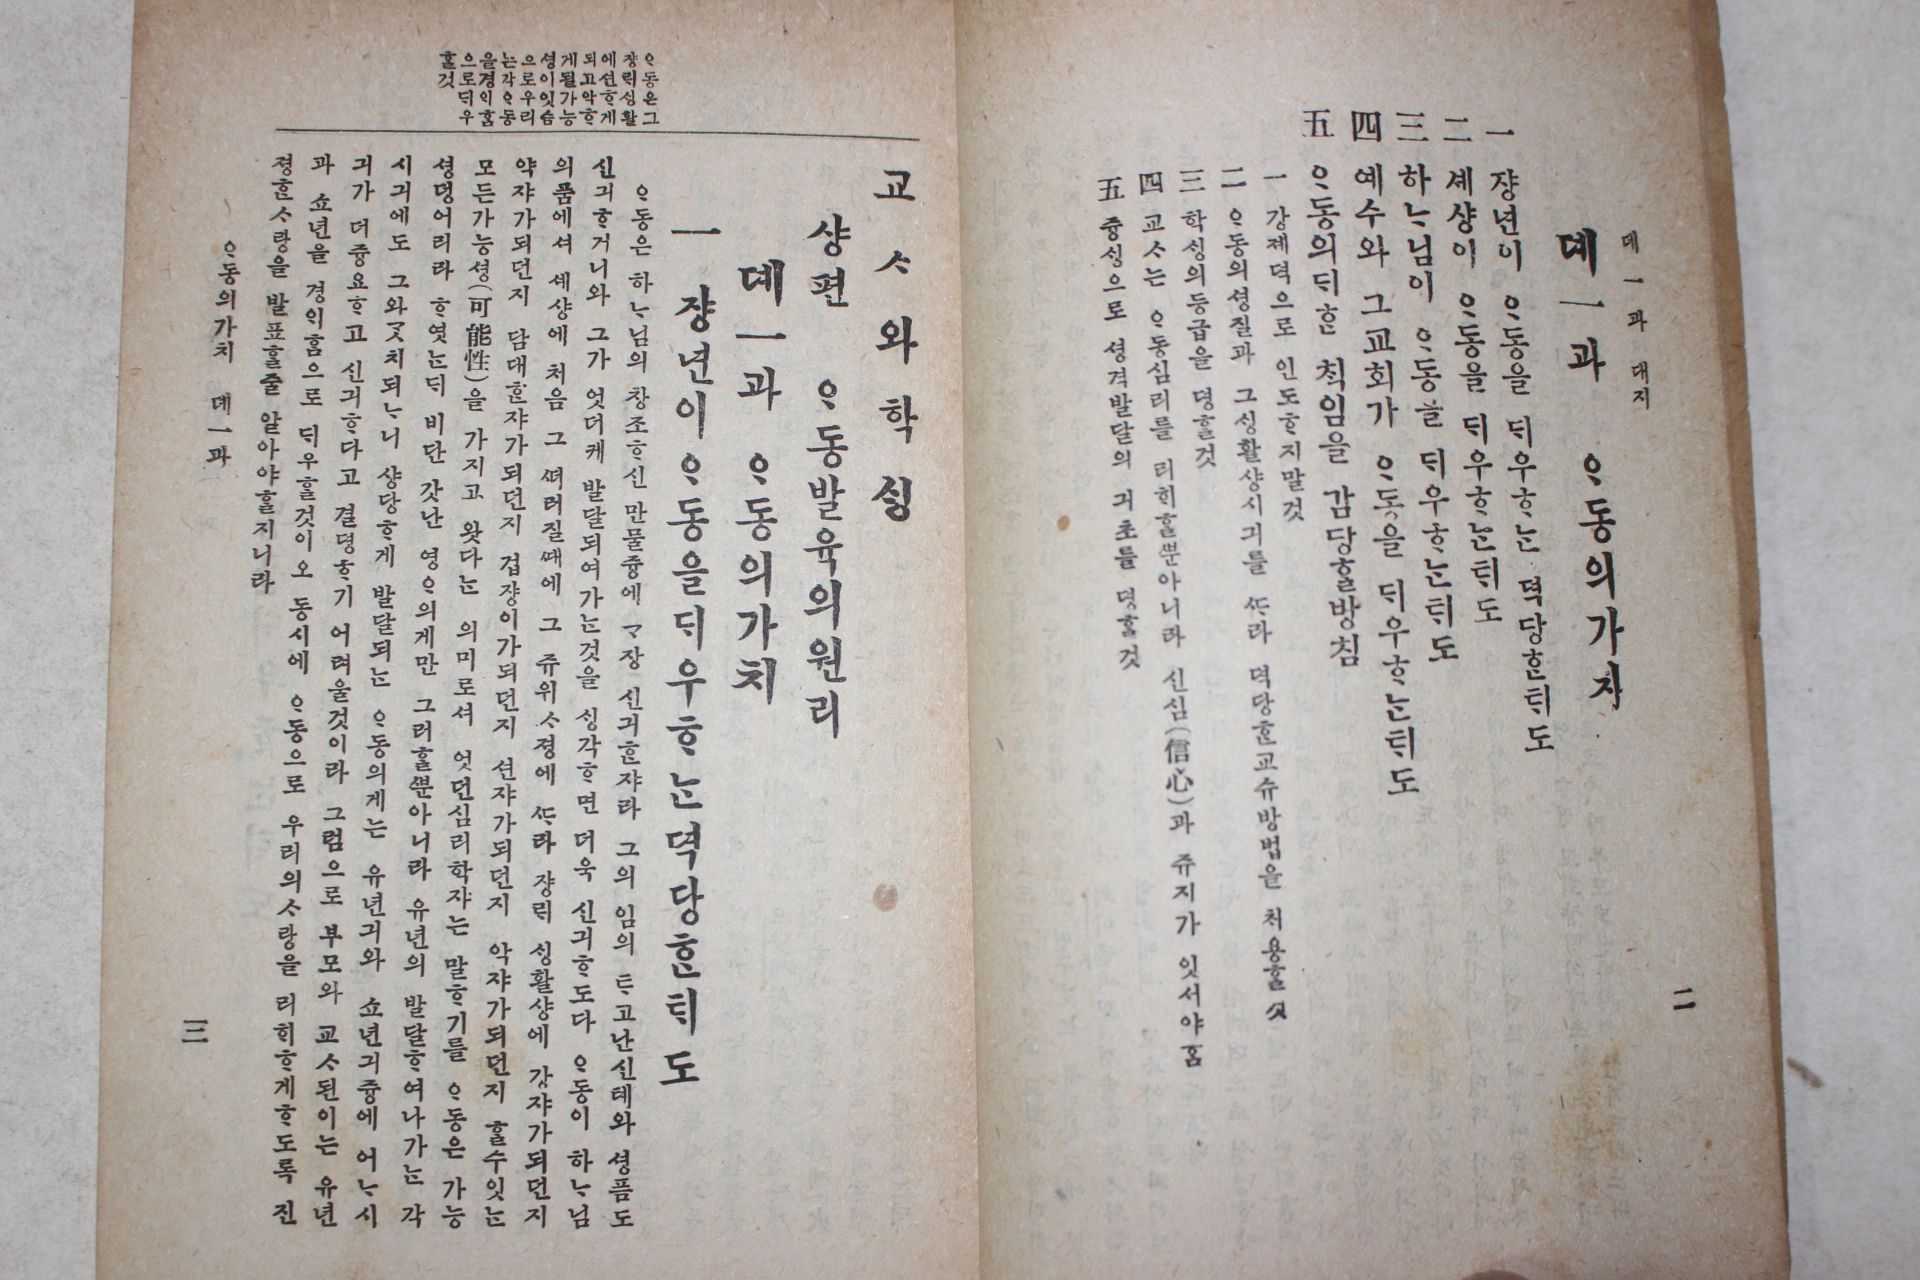 뎨一과 대지
뎨一과 ᄋᆞ동의가치
一 쟝년이 ᄋᆞ동을 ᄃᆡ우ᄒᆞᄂᆞᆫ 덕당ᄒᆞᆫ태도
二 셰샹이 ᄋᆞ동을 ᄃᆡ우ᄒᆞᄂᆞᆫ태도
三 하ᄂᆞ님이 ᄋᆞ동을 ᄃᆡ우ᄒᆞᄂᆞᆫ태도
四 예수와 그교회가 ᄋᆞ동을 ᄃᆡ우ᄒᆞᄂᆞᆫ태도
五 ᄋᆞ동의ᄃᆡᄒᆞᆫ ᄎᆡᆨ임을 감당ᄒᆞᆯ방침
一 강졔뎍으로 인도ᄒᆞ지말것
二 ᄋᆞ동의셩질과 그ᄉᆡᆼ활샹시긔를 ᄯᅡ라 덕당ᄒᆞᆫ교슈방법을 처용ᄒᆞᆯ 것
三 학ᄉᆡᆼ의등급을 뎡ᄒᆞᆯ것
四 교ᄉᆞ는 ᄋᆞ동심리를 리ᄒᆡᄒᆞᆯᄲᅮᆫ아니라 신심(信心)과 쥬지가 잇서야ᄒᆞᆷ
五 즁심으로 셩격발달의 긔초를 뎡ᄒᆞᆯ것
二
ᄋᆞ동은그
쟝ᄅᆡᄉᆡᆼ활
에션ᄒᆞ게
되고악ᄒᆞ
게될가능
셩이잇슴
으로우리
는각ᄋᆞ동
을경외ᄒᆞᆷ
으로ᄃᆡ우
ᄒᆞᆯ것
교ᄉᆞ와학ᄉᆡᆼ
샹편 ᄋᆞ동발육의원리
뎨一과 ᄋᆞ동의가치
一 쟝년이ᄋᆞ동을ᄃᆡ우ᄒᆞᄂᆞᆫ덕당ᄒᆞᆫ태도
ᄋᆞ동은 하ᄂᆞ님의 창조ᄒᆞ신 만물즁에 ᄀᆞ장 신긔ᄒᆞᆫ쟈라 그의 임의 ᄐᆞ고난신톄와 셩픔도
신긔ᄒᆞ거니와 그가 엇더케 발달되여가ᄂᆞᆫ것을 ᄉᆡᆼ각ᄒᆞ면 더욱 신긔ᄒᆞ도다 ᄋᆞ동이 하ᄂᆞ님
의품에셔 셰샹에 처음 그 ᄯᅥ러질ᄯᅢ에 그 쥬위ᄉᆞ졍에 ᄯᅡ라 쟝ᄅᆡ ᄉᆡᆼ활샹에 강쟈가되던지
약쟈가되던지 담대ᄒᆞᆫ쟈가되던지 겁쟝이가되던지 션쟈가되던지 악쟈가되던지 ᄒᆞᆯ수잇ᄂᆞᆫ
모든가능셩(可能性)을 가지고 왓다ᄂᆞᆫ 의미로셔 엇던심리학쟈는 말ᄒᆞ기를 ᄋᆞ동은 가능
셩뎡어리라 ᄒᆞ엿ᄂᆞᆫᄃᆡ 비단 갓난 영ᄋᆞ의게만 그러ᄒᆞᆯᄲᅮᆫ아니라 유년의 발달ᄒᆞ여나가ᄂᆞᆫ 각
시긔에도 그와ᄀᆞᆺ치되ᄂᆞ니 샹당ᄒᆞ게 발달되ᄂᆞᆫ ᄋᆞ동의게는 유년긔와 쇼년긔즁에 어ᄂᆞ시
긔가 더즁요ᄒᆞ고 신긔ᄒᆞ다고 결뎡ᄒᆞ기 어려울것이라 그럼으로 부모와 교ᄉᆞ된이는 유년
과 쇼년을 경외ᄒᆞᆷ으로 ᄃᆡ우ᄒᆞᆯ것이오 동시에 ᄋᆞ동으로 우리의ᄉᆞ랑을 리ᄒᆡᄒᆞ게ᄒᆞ도록 진
졍ᄒᆞᆫᄉᆞ랑을 발표ᄒᆞᆯ줄 알아야ᄒᆞᆯ지니라
ᄋᆞ동의가치 뎨一과
三